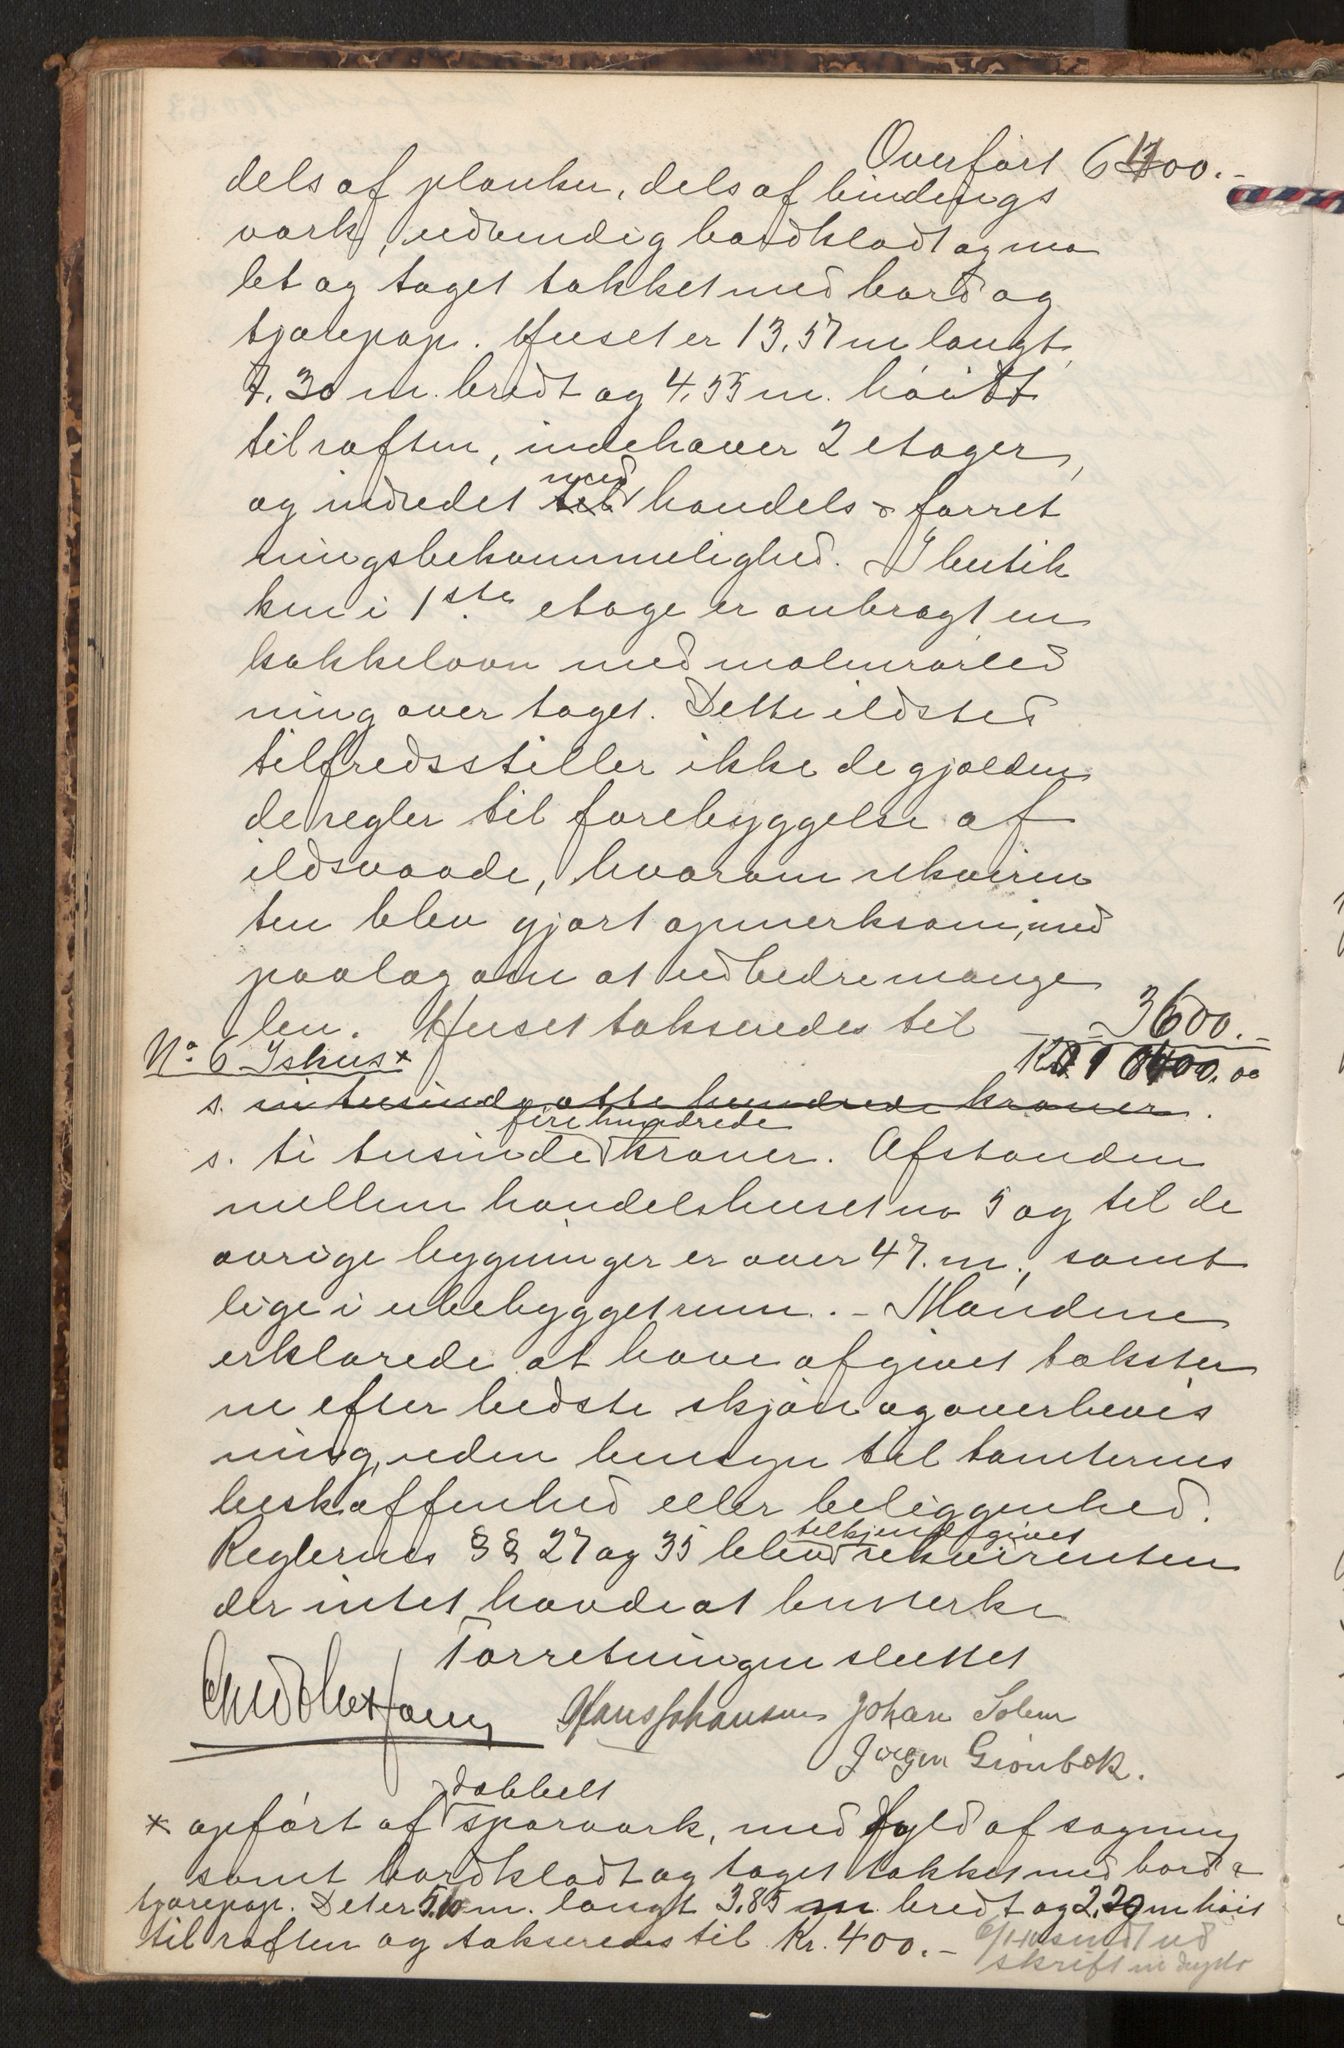 Overført 6400.-
dels af planker, dels af bindings
værk, udvendig bordklædt og ma
let og taget tækket med bord og
tjærepap. Huset er 13,57 m langt,
7,30 m. bredt og 4,55 m. høit
til raften, indehaver 2 etager,
og indredet til med handels & forret
ningsbekvemmelighed. I butik
ken i 1ste etage er anbragt en
kakkelovn med malmrørled
ning over taget. Dette ildsted
tilfredsstiller ikke de gjælden
de regler til forebyggelse af
ildsvaade, hvorom rekviren
ten blev gjort opmerksom, med
paalæg om at udbedre mange
len. Huset takseredes til - 3600.-
No 6 Ishus x
Kr. 10400.00
s. ni tusinde otte hundrede kroner.
s. ti tusinde fire hundrede kroner. Afstanden
mellem handelshuset no 5 og til de
øvrige bygninger er over 47. m., samt
lige i ubebygget rum. - Mændene
erklærede at have afgivet takster
ne efter bedste skjøn og overbevis
ning, uden hensyn til tomternes
beskaffenhed eller beliggenhed.
Reglernes §§ 27 og 35 blev tilkjendegivet rekvirenten
der intet havde at bemerke
Forretningen sluttet
Hans Johansen Johan Solem
Jørgen Grønbæk.
x opført af dobbelt sperværk, med fyld af sagmug
samt bordklædt og taget tækket med bord &
tjærepap. Det er 5,10 m. langt 3,85 m bredt og 2,20 m høit
til raften og takseredes til Kr. 400.-
udskrift